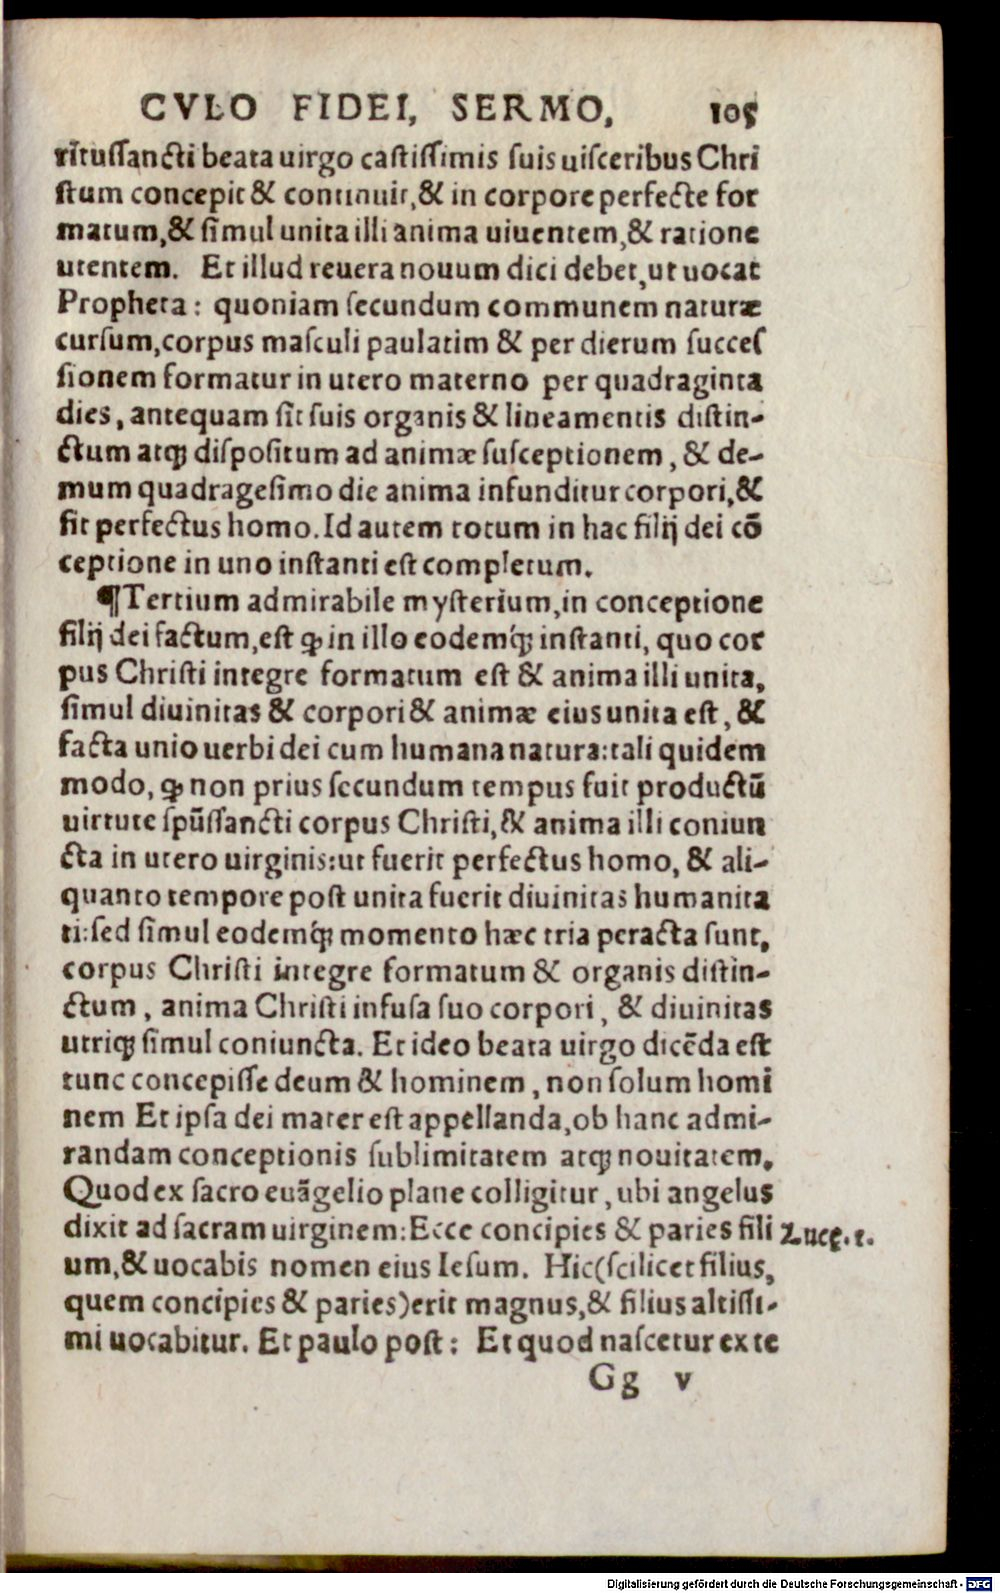 CVLO FIDEI, SERMO, 105
ritussancti beata uirgo castissimis suis uisceribus Chri
stum concepit & continuit, & in corpore perfecte for
matum, & simul unita illi anima uiuentem, & ratione
utentem. Et illud reuera nouum dici debet, ut uocat
Propheta: quoniam secundum communem naturæ
cursum, corpus masculi paulatim & per dierum succes
sionem formatur in utero materno per quadraginta
dies, antequam sit suis organis & lineamentis distin-
ctum atqꝫ dispositum ad animæ susceptionem, & de-
mum quadragesimo die anima infunditur corpori, &
fit perfectus homo. Id autem totum in hac filij dei cō
ceptione in uno instanti est completum.
¶Tertium admirabile mysterium, in conceptione
filij dei factum, est ꝙ in illo eodemq́ꝫ instanti, quo cor
pus Christi integre formatum est & anima illi unita,
simul diuinitas & corpori & animæ eius unita est, &
facta unio uerbi dei cum humana natura: tali quidem
modo, ꝙ non prius secundum tempus fuit productū
uirtute spūssancti corpus Christi, & anima illi coniun
cta in utero uirginis: ut fuerit perfectus homo, & ali-
quanto tempore post unita fuerit diuinitas humanita
ti: sed simul eodemq́ꝫ momento hæc tria peracta sunt,
corpus Christi integre formatum & organis distin-
ctum, anima Christi infusa suo corpori, & diuinitas
utriqꝫ simul coniuncta. Et ideo beata uirgo dicēda est
tunc concepisse deum & hominem, non solum homi
nem Et ipsa dei mater est appellanda, ob hanc admi-
randam conceptionis sublimitatem atqꝫ nouitatem.
Quod ex sacro euāgelio plane colligitur, ubi angelus
dixit ad sacram uirginem: Ecce concipies & paries fili Lucę. 1.
um, & uocabis nomen eius Iesum. Hic (scilicet filius,
quem concipies & paries) erit magnus, & filius altissi-
mi uocabitur. Et paulo post: Et quod nascetur ex te
Gg v
Digitalisierung gefördert durch die Deutsche Forschungsgemeinschaft - DFG